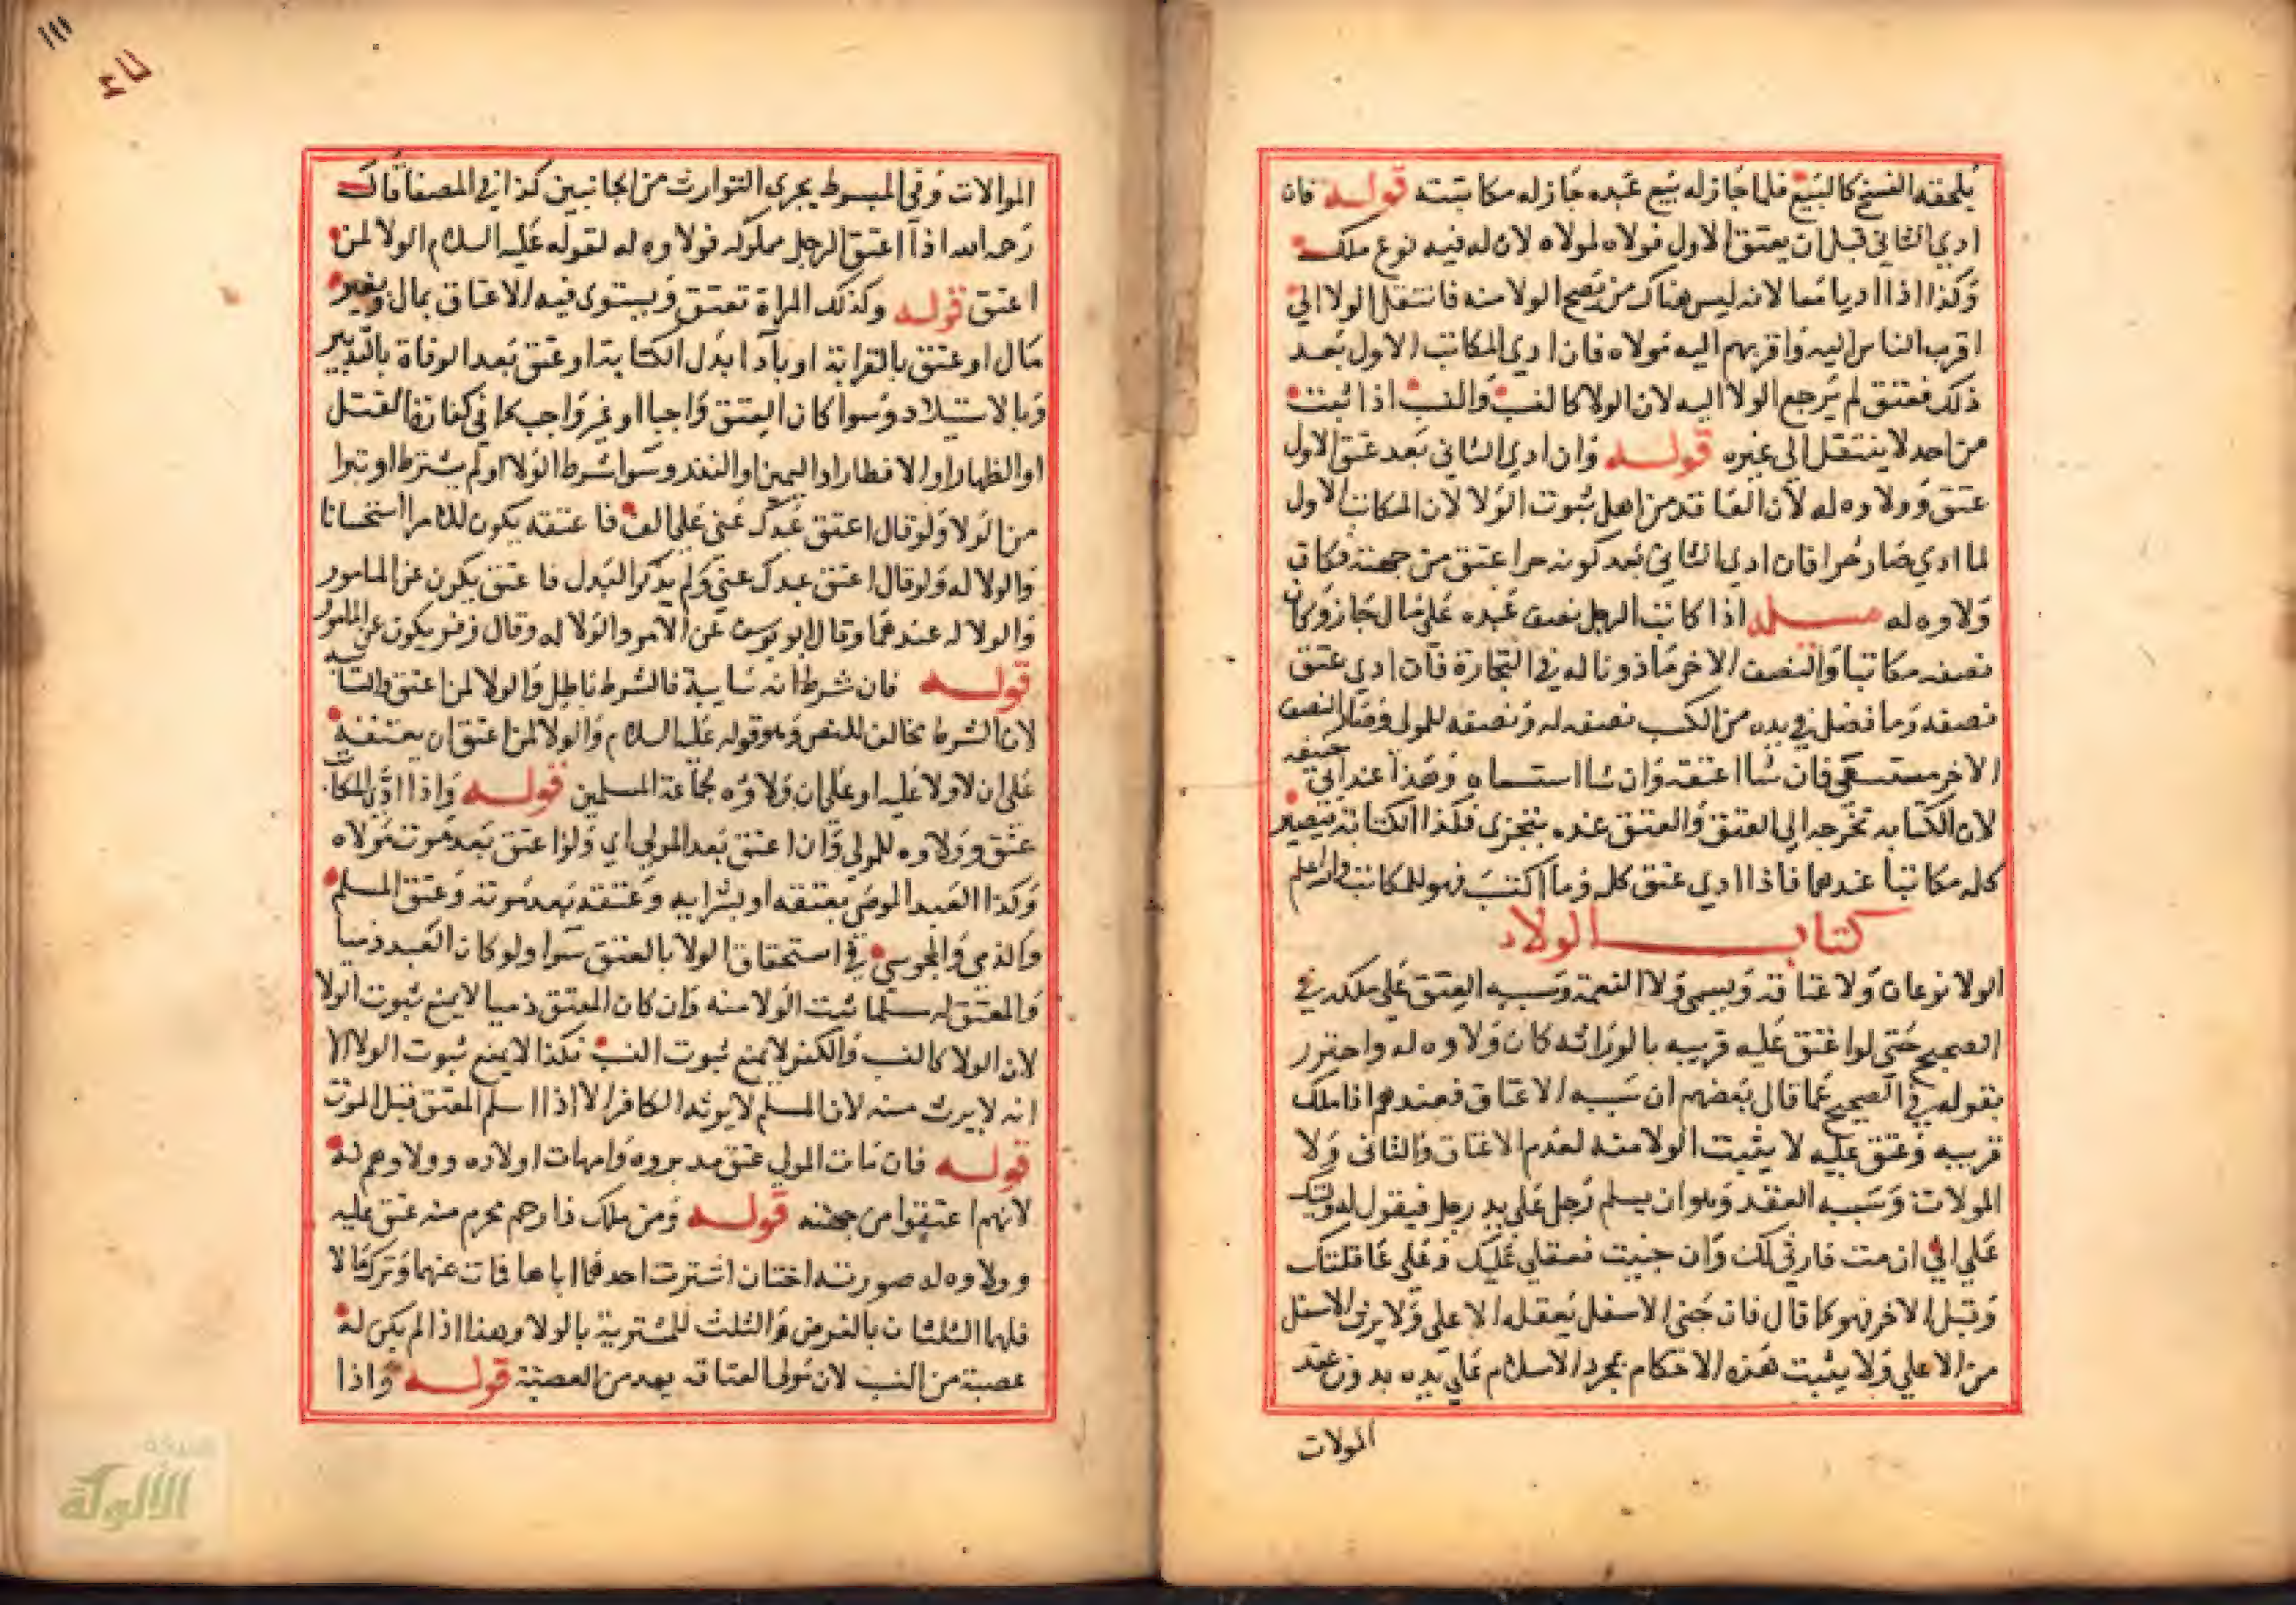 يلحقه الفسخ كالبيع فلما جاز له بيع عبده جاز له مكاتبته قوله فان
ادي الثاني قبل ان يعتق الاول فولاه لمولاه لان له فيه نوع ملك
وكذا اذا اديا معا لانه ليس هناك من يصح الولا منه فانتقل الولا الي
اقرب الناس اليه واقربهم اليه مولاه فان ادي المكاتب الاول بعد
ذلك فعتق لم يرجع الولا اليه لان الولا كالنسب والنسب اذا ثبت
من احد لا ينتقل الي غيره قوله وان ادي الثاني بعد عتق الاول
عتق وولاوه له لان العاقد من اهل ثبوت الولا لان المكاتب الاول
لما ادي صار حرا فان ادي الثاني بعد كونه حرا عتق من جهته فكان
ولاوه له مسله اذا كاتب الرجل نصف عبده علي مال جاز وكان
نصفه مكاتبا والنصف الاخر ماذونا له في التجارة فان ادي عتق
نصفه وما فضل في يده من الكسب نصفه له ونصفه للمولي وصار النصف
الاخر مستسعي فان شا اعتقه وان شا استسعاه وهذا عند ابي حنيفه
لان الكتابه تخرجه الي العتق والعتق عنده يتجزي فكذا الكتابة فيصير
كله مكاتبا عندهما فاذا ادي عتق كله وما اكتسب فهو للمكاتب والله اعلم
كتاب الولاء
الولا نوعان ولا عتاقه ويسمي ولا النعمة وسببه العتق علي ملكه في
الصحيح حتي لو اعتق عليه قريبه بالوراثه كان ولاوه له واحترز
بقوله في الصحيح عما قال بعضهم ان سببه الاعتاق فعندهم اذا ملك
قريبه وعتق عليه لا يثبت الولا منه لعدم الاعتاق والثاني ولا
المولات وسببه العقد وهو ان يسلم رجل علي يد رجل فيقول له واليتك
علي اني ان مت فارثي لك وان جنيت فعقلي عليك وعلي عاقلتك
وقبل الاخر فهو كما قال فان جني الاسفل يعقله الاعلي ولا يرث الاسفل
من الاعلي ولا يثبت هذه الاحكام بمجرد الاسلام علي يده بدون عقد
المولات
١١١
الموالات وفي المبسوط يجري التوارث من الجانبين كذا في المصفا قال
رحمه الله اذا اعتق الرجل مملوكه فولاوه له لقوله عليه السلام الولا لمن
اعتق قوله وكذلك المراة تعتق ويستوي فيه الاعتاق بمال وبغير
مال او عتق بالقرابة او بادا بدل الكتابة او عتق بعد الوفاة بالتدبير
وبالاستيلاد وسوا كان العتق واجبا او غير واجب كما في كفارة القتل
او الظهار او الافطار او اليمين او النذر وسوا شرط الولا او لم يشترط او تبرا
من الولا ولو قال اعتق عبدك عني علي الف فاعتقه يكون للامر استحسانا
والولا له ولو قال اعتق عبدك عني ولم يذكر البدل فاعتق يكون عن المامور
والولا له عندهما وقال ابو يوسف عن الامر والولا له وقال زفر يكون عن المامور
قوله فان شرط انه سايبة فالشرط باطل والولا لمن اعتق والسايبه
لان الشرط مخالف للنص وهو قوله عليه السلام والولا لمن اعتق ان يعتقه
علي ان لا ولا عليه او علي ان ولاوه لجماعة المسلمين قوله واذا ادي المكاتب
عتق وولاوه للمولي وان اعتق بعد المولي اي ولو اعتق بعد موت مولاه
وكذا العبد الموصي بعتقه او بشرايه وعتقه بعد موته وعتق المسلم
والذمي والمجوسي في استحقاق الولا بالعتق سوا ولو كان العبد ذميا
والمعتق له مسلما ثبت الولا منه وان كان المعتق ذميا لا يمنع ثبوت الولا
لان الولا كالنسب والكفر لا يمنع ثبوت النسب فكذا لا يمنع ثبوت الولا الا
انه لا يرث منه لان المسلم لا يورثه الكافر الا اذا اسلم المعتق قبل الموت
قوله فان مات المولي عتق مدبروه وامهات اولاده وولاوهم له
لانهم اعتقوا من جهته قوله ومن ملك ذا رحم محرم منه عتق عليه
وولاوه له صورته اختان اشترت احدهما اباها فمات عنهما وترك مالا
فلهما الثلثان بالفرض والثلث للمشترية بالولا وهذا اذا لم يكن له
عصبة من النسب لان مولي العتاقه يعد من العصبة قوله واذا
الألوكة